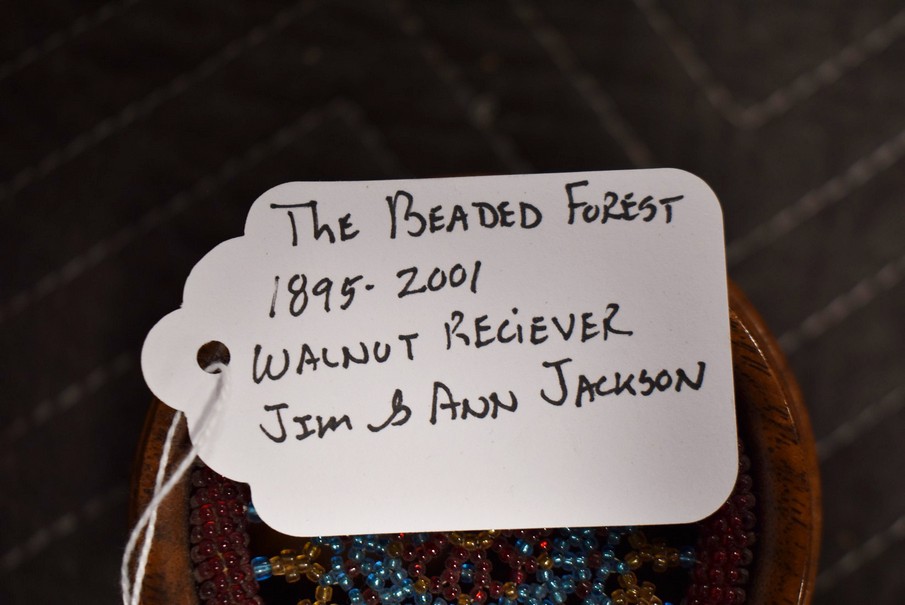 The BEADED FOREST
1895-2001
WALNUT RECIEVER
JIM & ANN JACKSON